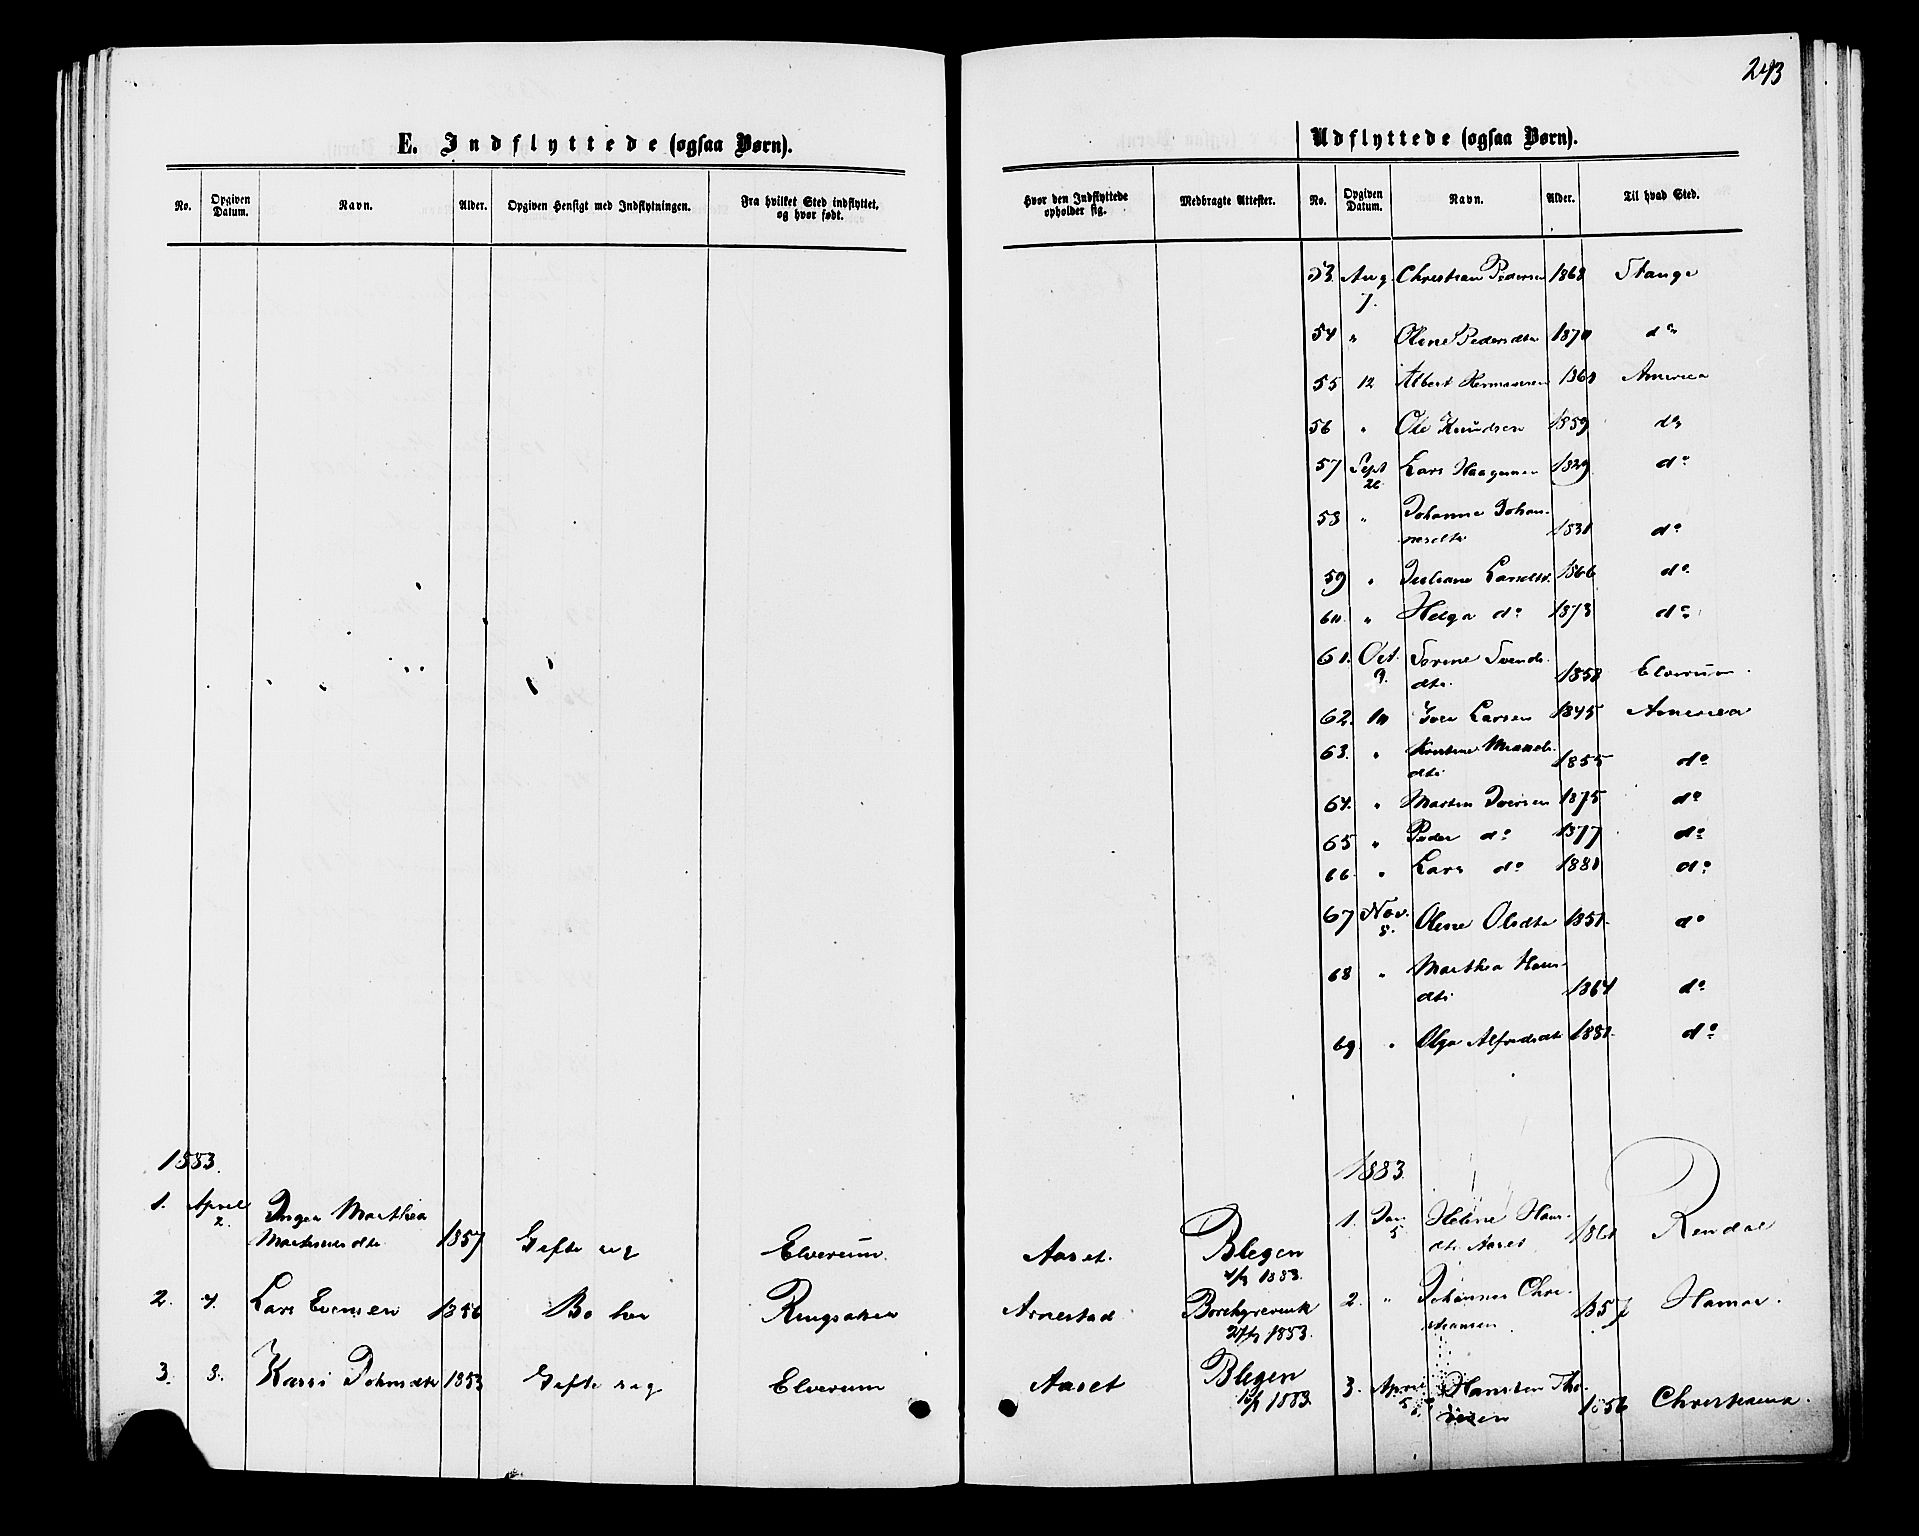 243
E. Indflyttede (ogsaa Børn).
No. Opgiven Datum. Navn. Alder. Opgiven Hensigt med Indflytningen. Fra hvilket Sted indflyttet, og hvor født.
1883.
1. April 2. Inger Marthea
Martinusdtr 1857 Gifte sig Elverum.
2. 7. Lars Evensen 1856 Bo her Ringsaker
3. 8. Kari Johnsdtr 1853 Gifte sig Elverum
Udflyttede (ogsaa Børn).
Hvor den Indflyttede opholder sig. Medbragte Attester. No. Opgiven Datum. Navn. Alder. Til hvad Sted.
53. Aug 7. Christian Pedersen 1868 Stange
54 " Oline Pedersdtr 1870 do
55 12 Albert Hermansen 1860 America
56 " Ole Knudsen 1859 do
57 Sept 26 Lars Haagensen 1829 do
58 " Johanne Johan-
nesdtr 1830 do
59 " Juliane Larsdtr. 1866 do
60. " Helga do 1873 do
61. Oct. 9. Sorine Svends-
dtr. 1858 Elverum.
62. 10 Iver Larsen 1845 America
63. "
dtr 1855 do
64. " Martin Iversen 1875 do
65 " Peder do 1877 do
66. " Lars do 1880 do
67 Nov. 8. Oline Olsdtr 1851. do
68 " Marthea Hans-
dtr 1864 do
69. " Olga Alfredsdtr 1881. do
1883.
Aaset. Blegen
1883.
1. Jan 5 Helene Hans-
dtr. Aaset 1861 Rendal
Arnestad Borchgrevink
1883.
2. " Johannes Chri-
stiansen 1857 Hamar.
Aaset Blegen
1883.
3. April 5. Hansten Tho-
resen 1856 Christiania.